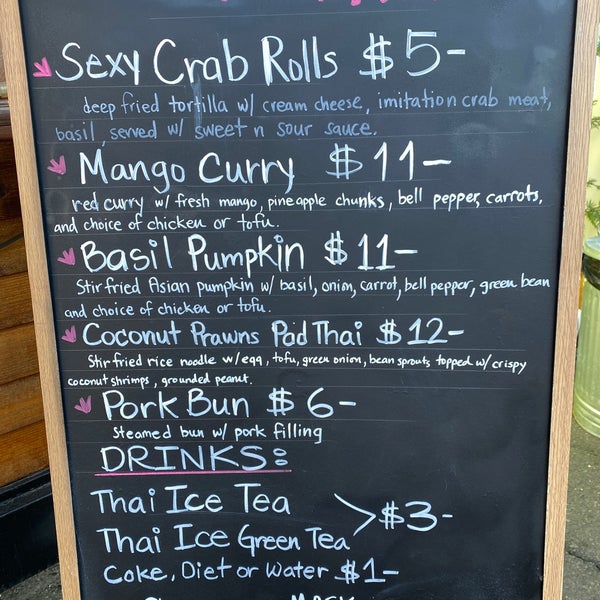 Sexy Crab Rolls $5-
deep fried tortilla w/ cream cheese, imitation crab meat,
basil, served w/ sweet n sour sauce.
Mango Curry $11-
red curry w/ fresh mango, pineapple chunks, bell pepper, carrots,
and choice of chicken or tofu.
Basil Pumpkin $11-
Stir fried Asian pumpkin w/ basil, onion, carrot, bell pepper, green bean
and choice of chicken or tofu.
Coconut Prawns Pad Thai $12-
Stir fried rice noodle w/egg, tofu, green onion, bean sprouts, topped w/ crispy
coconut shrimps, grounded peanut.
Pork Bun $6-
Steamed bun w/ pork filling
DRINKS:
Thai Ice Tea
Thai Ice Green Tea > $3-
Coke, Diet or Water $1-